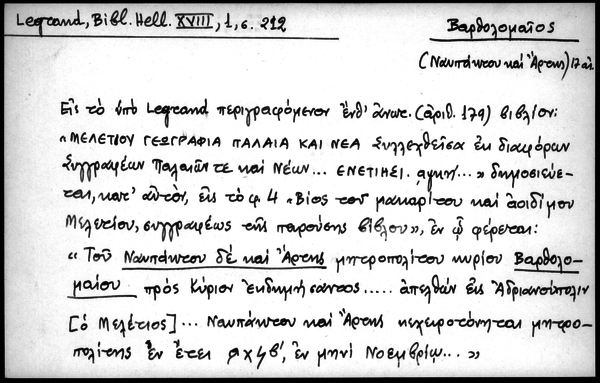 Legrand, Bibl. Hell. XVIII, 1, σ. 212
Βαρθολομαῖος
(Ναυπάκτου καὶ Ἄρτης) 17 αἰ.
Εἰς τὸ ὑπὸ Legrand περιγραφόμενον ἔνθ' ἀνωτ. (ἀριθ. 179) βιβλίον:
« ΜΕΛΕΤΙΟΥ ΓΕΩΓΡΑΦΙΑ ΠΑΛΑΙΑ ΚΑΙ ΝΕΑ συλλεχθεῖσα ἐκ διαφόρων
συγγραφέων Παλαιῶν τε καὶ Νέων... ΕΝΕΤΙΗΣΙ, αψκη'... » δημοσιεύε-
ται, κατ' αὐτὸν, εἰς τὸ φ. 4 « Βίος τοῦ μακαρίτου καὶ ἀοιδίμου
Μελετίου, συγγραφέως τῆς παρούσης βίβλου », ἐν ᾧ φέρεται:
« Τοῦ Ναυπάκτου δὲ καὶ Ἄρτης μητροπολίτου κυρίου Βαρθολο-
μαίου πρὸς Κύριον ἐκδημήσαντος..... ἀπελθὼν εἰς Ἀδριανούπολιν
[ὁ Μελέτιος]... Ναυπάκτου καὶ Ἄρτης κεχειροτόνηται μητρο-
πολίτης ἐν ἔτει ͵αχϟβ', ἐν μηνὶ Νοεμβρίῳ... »